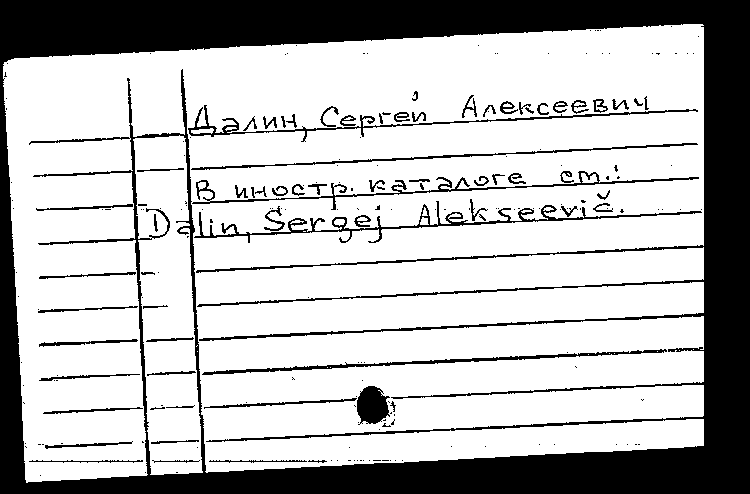 Далин, Сергей Алексеевич
В иностр. каталоге см.:
Dalin, Sergej Alekseevič.